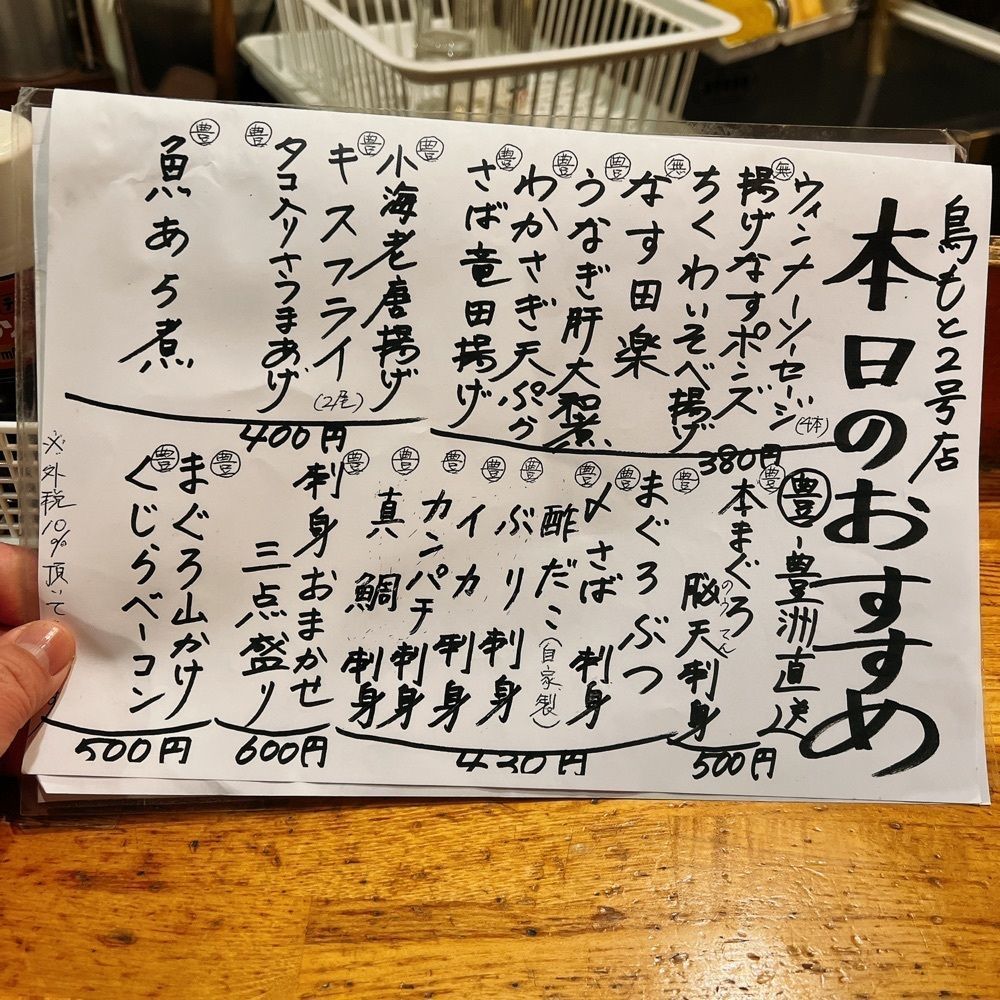 鳥もと2号店
本日のおすすめ
豊-豊洲直送
ウィンナーソーセージ(4本)
無 揚げなすポンズ
ちくわいそべ揚げ
無 なす田楽
豊 うなぎ肝大和煮
豊 わかさぎ天ぷら
豊 さば竜田揚げ
380円
豊 小海老唐揚げ
豊 キスフライ(2尾)
豊 タコ入りさつまあげ
豊 魚あら煮
400円
豊 本まぐろ脳天刺身
のうてん
500円
豊 まぐろぶつ
豊 〆さば刺身
豊 酢だこ(自家製)
豊 ぶり刺身
豊 イカ刺身
豊 カンパチ刺身
豊 真鯛刺身
430円
豊 刺身おまかせ
三点盛り
600円
豊 まぐろ山かけ
豊 くじらベーコン
500円
※外税10%頂いて